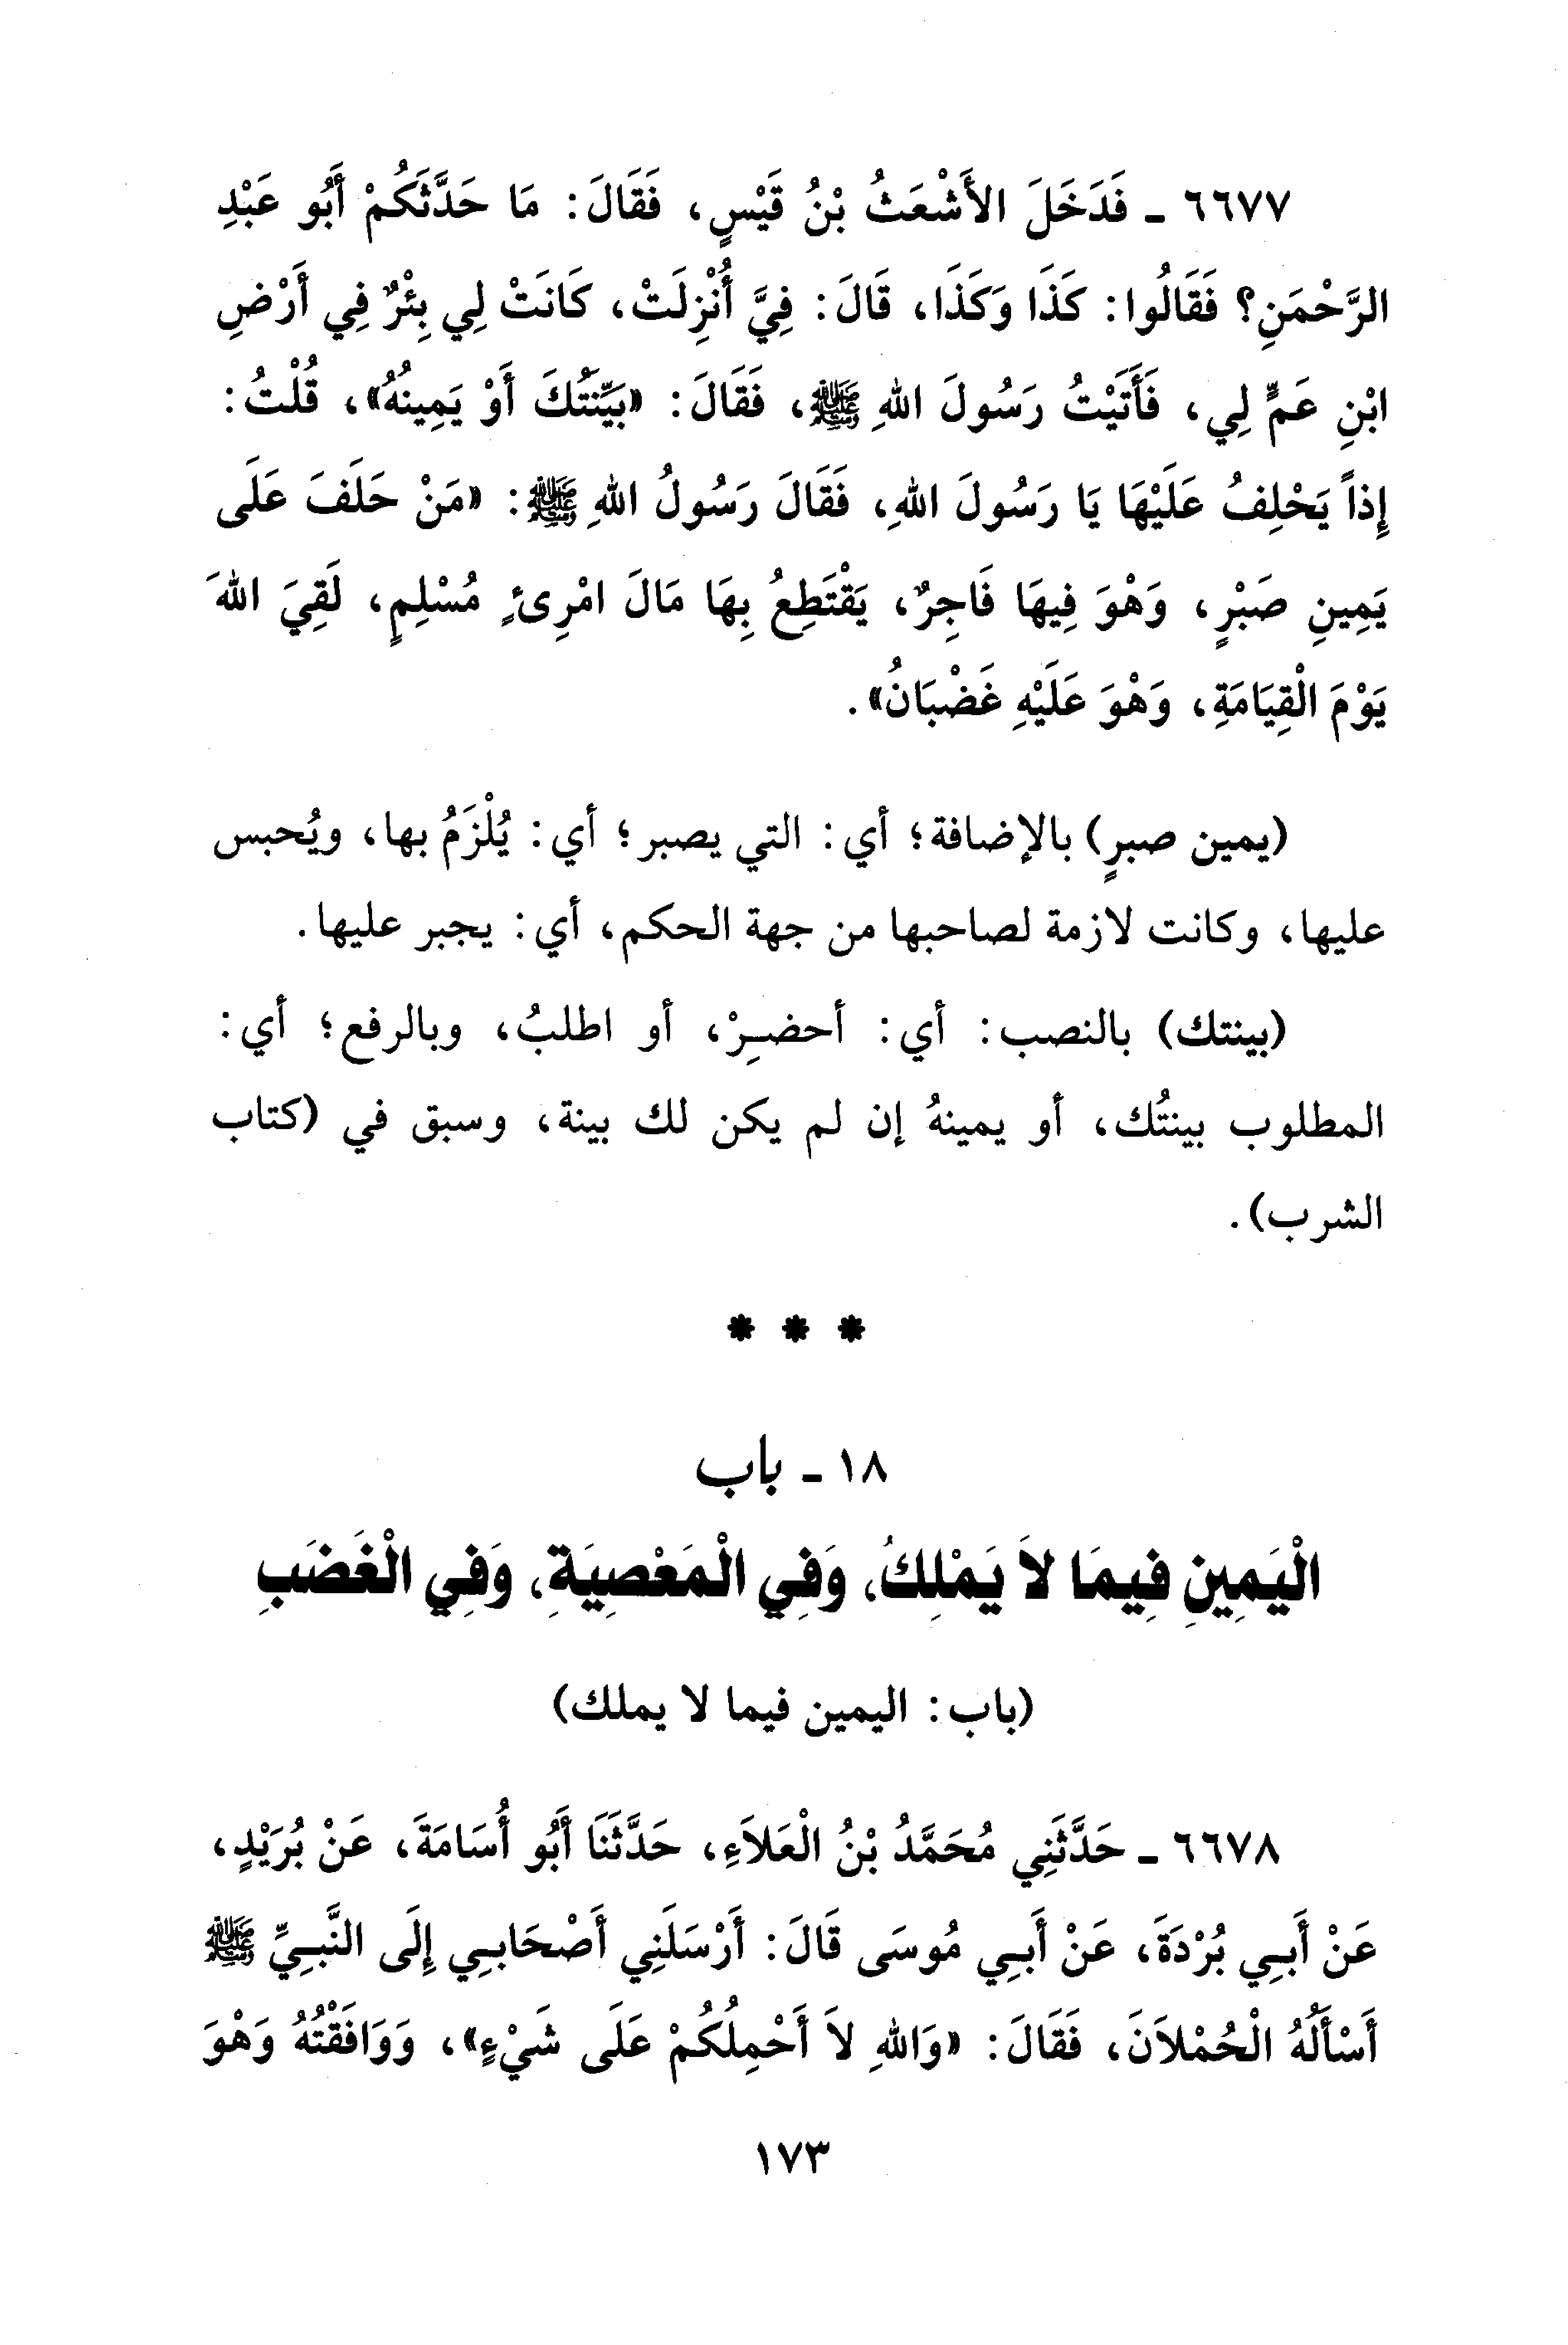 ٦٦٧٧ ـ فَدَخَلَ الأَشْعَثُ بْنُ قَيْسٍ، فَقَالَ: مَا حَدَّثَكُمْ أَبُو عَبْدِ
الرَّحْمَنِ؟ فَقَالُوا: كَذَا وَكَذَا، قَالَ: فِيَّ أُنْزِلَتْ، كَانَتْ لِي بِئْرٌ فِي أَرْضِ
ابْنِ عَمٍّ لِي، فَأَتَيْتُ رَسُولَ اللهِ ﷺ، فَقَالَ: «بَيِّنَتُكَ أَوْ يَمِينُهُ»، قُلْتُ:
إِذاً يَحْلِفُ عَلَيْهَا يَا رَسُولَ اللهِ، فَقَالَ رَسُولُ اللهِ ﷺ: «مَنْ حَلَفَ عَلَى
يَمِينِ صَبْرٍ، وَهْوَ فِيهَا فَاجِرٌ، يَقْتَطِعُ بِهَا مَالَ امْرِئٍ مُسْلِمٍ، لَقِيَ اللهَ
يَوْمَ الْقِيَامَةِ، وَهْوَ عَلَيْهِ غَضْبَانُ».
(يمين صبرٍ) بالإضافة؛ أي: التي يصبر؛ أي: يُلْزَمُ بها، ويُحبس
عليها، وكانت لازمة لصاحبها من جهة الحكم، أي: يجبر عليها.
(بينتك) بالنصب: أي: أحضِرْ، أو اطلبُ، وبالرفع؛ أي:
المطلوب بينتُك، أو يمينهُ إن لم يكن لك بينة، وسبق في (كتاب
الشرب).
* * *
١٨ ـ باب
الْيَمِينِ فِيمَا لاَ يَمْلِكُ، وَفِي الْمَعْصِيَةِ، وَفِي الْغَضَبِ
(باب: اليمين فيما لا يملك)
٦٦٧٨ ـ حَدَّثَنِي مُحَمَّدُ بْنُ الْعَلاَءِ، حَدَّثَنَا أَبُو أُسَامَةَ، عَنْ بُرَيْدٍ،
عَنْ أَبِي بُرْدَةَ، عَنْ أَبِي مُوسَى قَالَ: أَرْسَلَنِي أَصْحَابِي إِلَى النَّبِيِّ ﷺ
أَسْأَلُهُ الْحُمْلاَنَ، فَقَالَ: «وَاللهِ لاَ أَحْمِلُكُمْ عَلَى شَيْءٍ»، وَوَافَقْتُهُ وَهْوَ
١٧٣